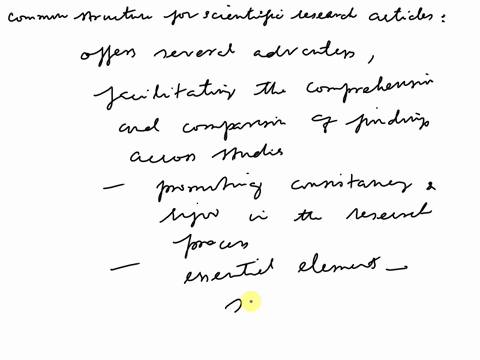 common structure for scientific research articles:
offers several advantess,
facilitating the comprehension
and comparison of findings
across studies
— promoting consistancy &
rigor in the research
process
— essential elements —